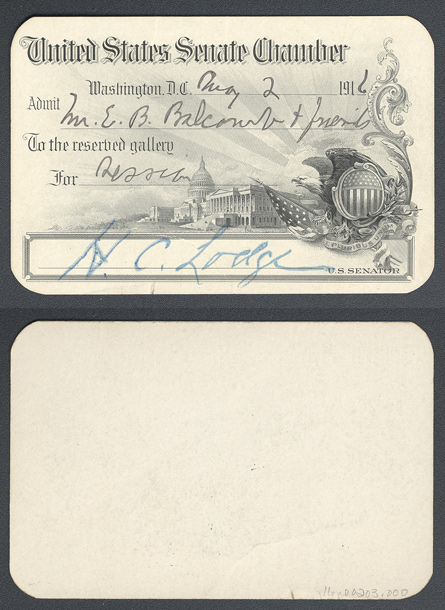 United States Senate Chamber
Washington, D.C. May 2 1916
Admit Mr. E. B. Balcomb & friends
To the reserved gallery
For Session
H. C. Lodge
U.S. SENATOR